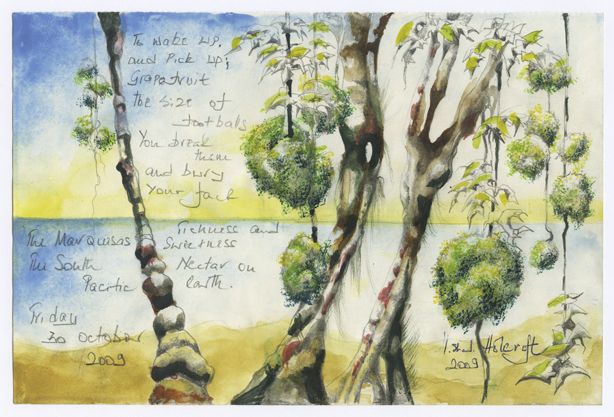 To wake up,
and Pick up;
Grapafruit
the size of
footballs
You break
them
and bury
Your face
The Marquisas
The South
Pacific
Richness and
Sweetness
Nectar on
Earth.
Friday
30 October
2009
Holcroft
2009